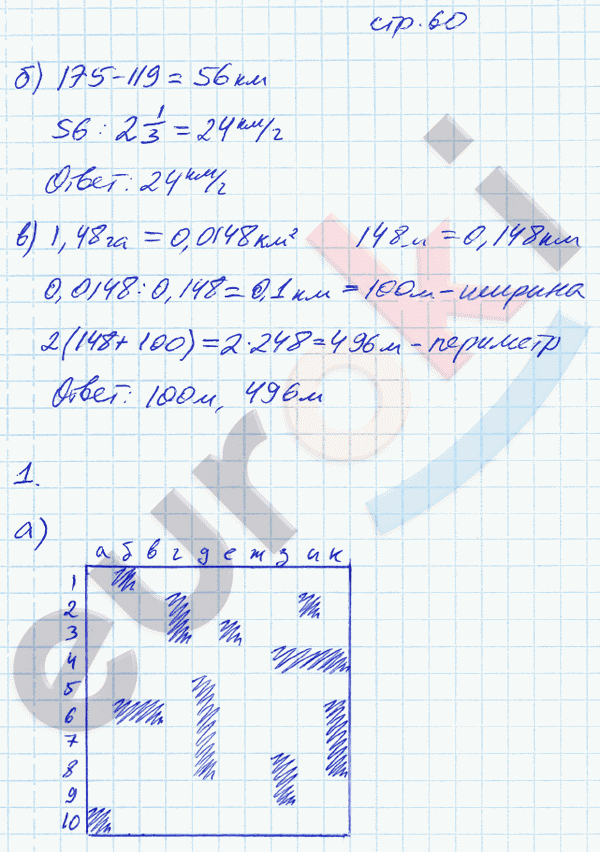 стр. 60
б) 175 - 119 = 56 км
56 : 2 1/3 = 24 км/г
Ответ: 24 км/г
в) 1,48 га = 0,0148 км² 148 м = 0,148 км
0,0148 : 0,148 = 0,1 км = 100 м - ширина
2(148 + 100) = 2 · 248 = 496 м - периметр
Ответ: 100 м, 496 м
1.
а)
а б в г д е ж з и к
1
2
3
4
5
6
7
8
9
10
euroki